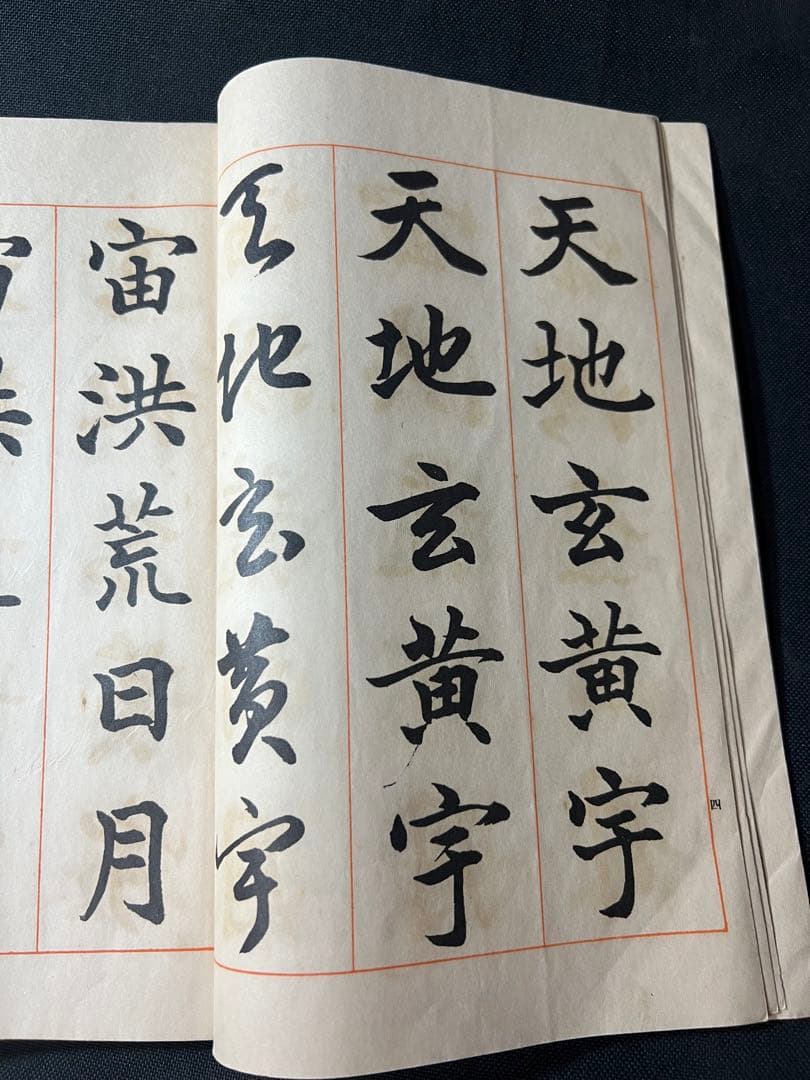 天地玄黄宇
天地玄黄宇
天地玄黄宇
宙洪荒日月